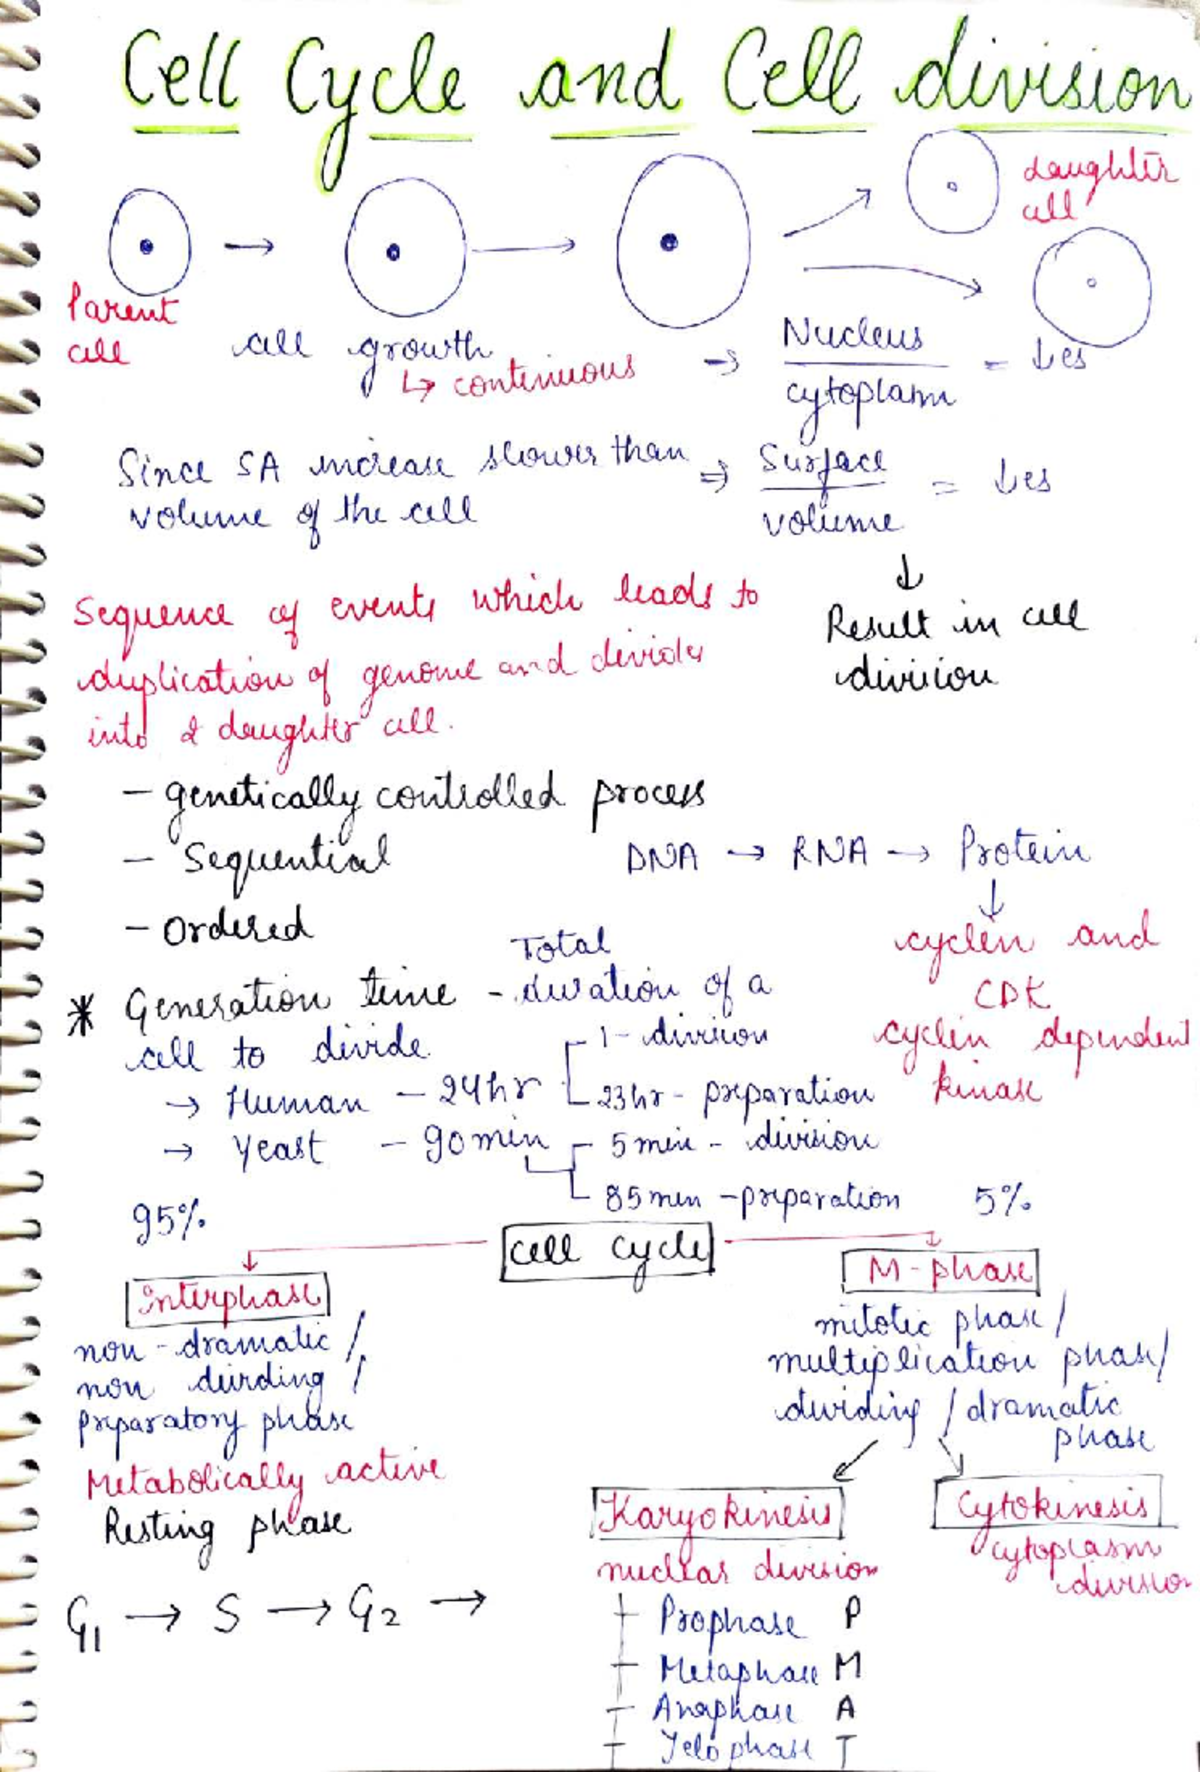 Cell Cycle and Cell division
daughter
cell
Parent
cell
cell growth
↳ continuous
⇒ Nucleus
cytoplasm
= ↓es
Since SA increase slower than
volume of the cell
⇒ Surface
volume
= ↓es
↓
Result in cell
division
Sequence of events which leads to
duplication of genome and divides
into 2 daughter cell.
- genetically controlled process
- Sequential
- Ordered
DNA → RNA → Protein
↓
cyclen and
CDK
cyclin dependent
kinase
* Generation time - Total duration of a
cell to divide
→ Human - 24hr
1 - division
23hr - preparation
→ Yeast - 90 min
5 min - division
85 min - preparation
95%
5%
Cell cycle
Interphase
non-dramatic /
non dividing /
preparatory phase
Metabolically active
Resting phase
G1 → S → G2 →
M-phase
mitotic phase /
multiplication phase /
dividing / dramatic
phase
Karyokinesis
nuclear division
Prophase P
Metaphase M
Anaphase A
Telophase T
Cytokinesis
cytoplasm
division